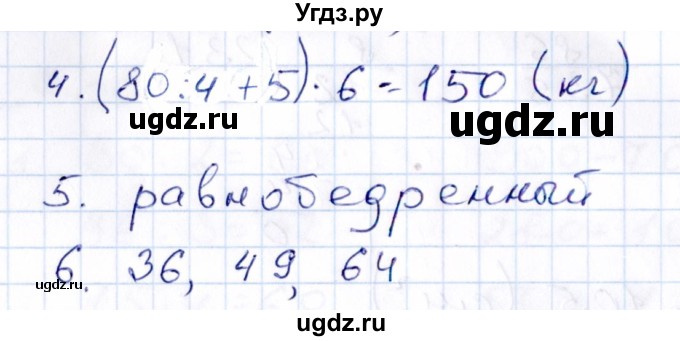 Угдз.ру
4. (80:4+5)·6=150 (кг)
ugdz.ru
ugdz.ru
5. равнобедренный
6. 36, 49, 64
ugdz.ru
ugdz.ru